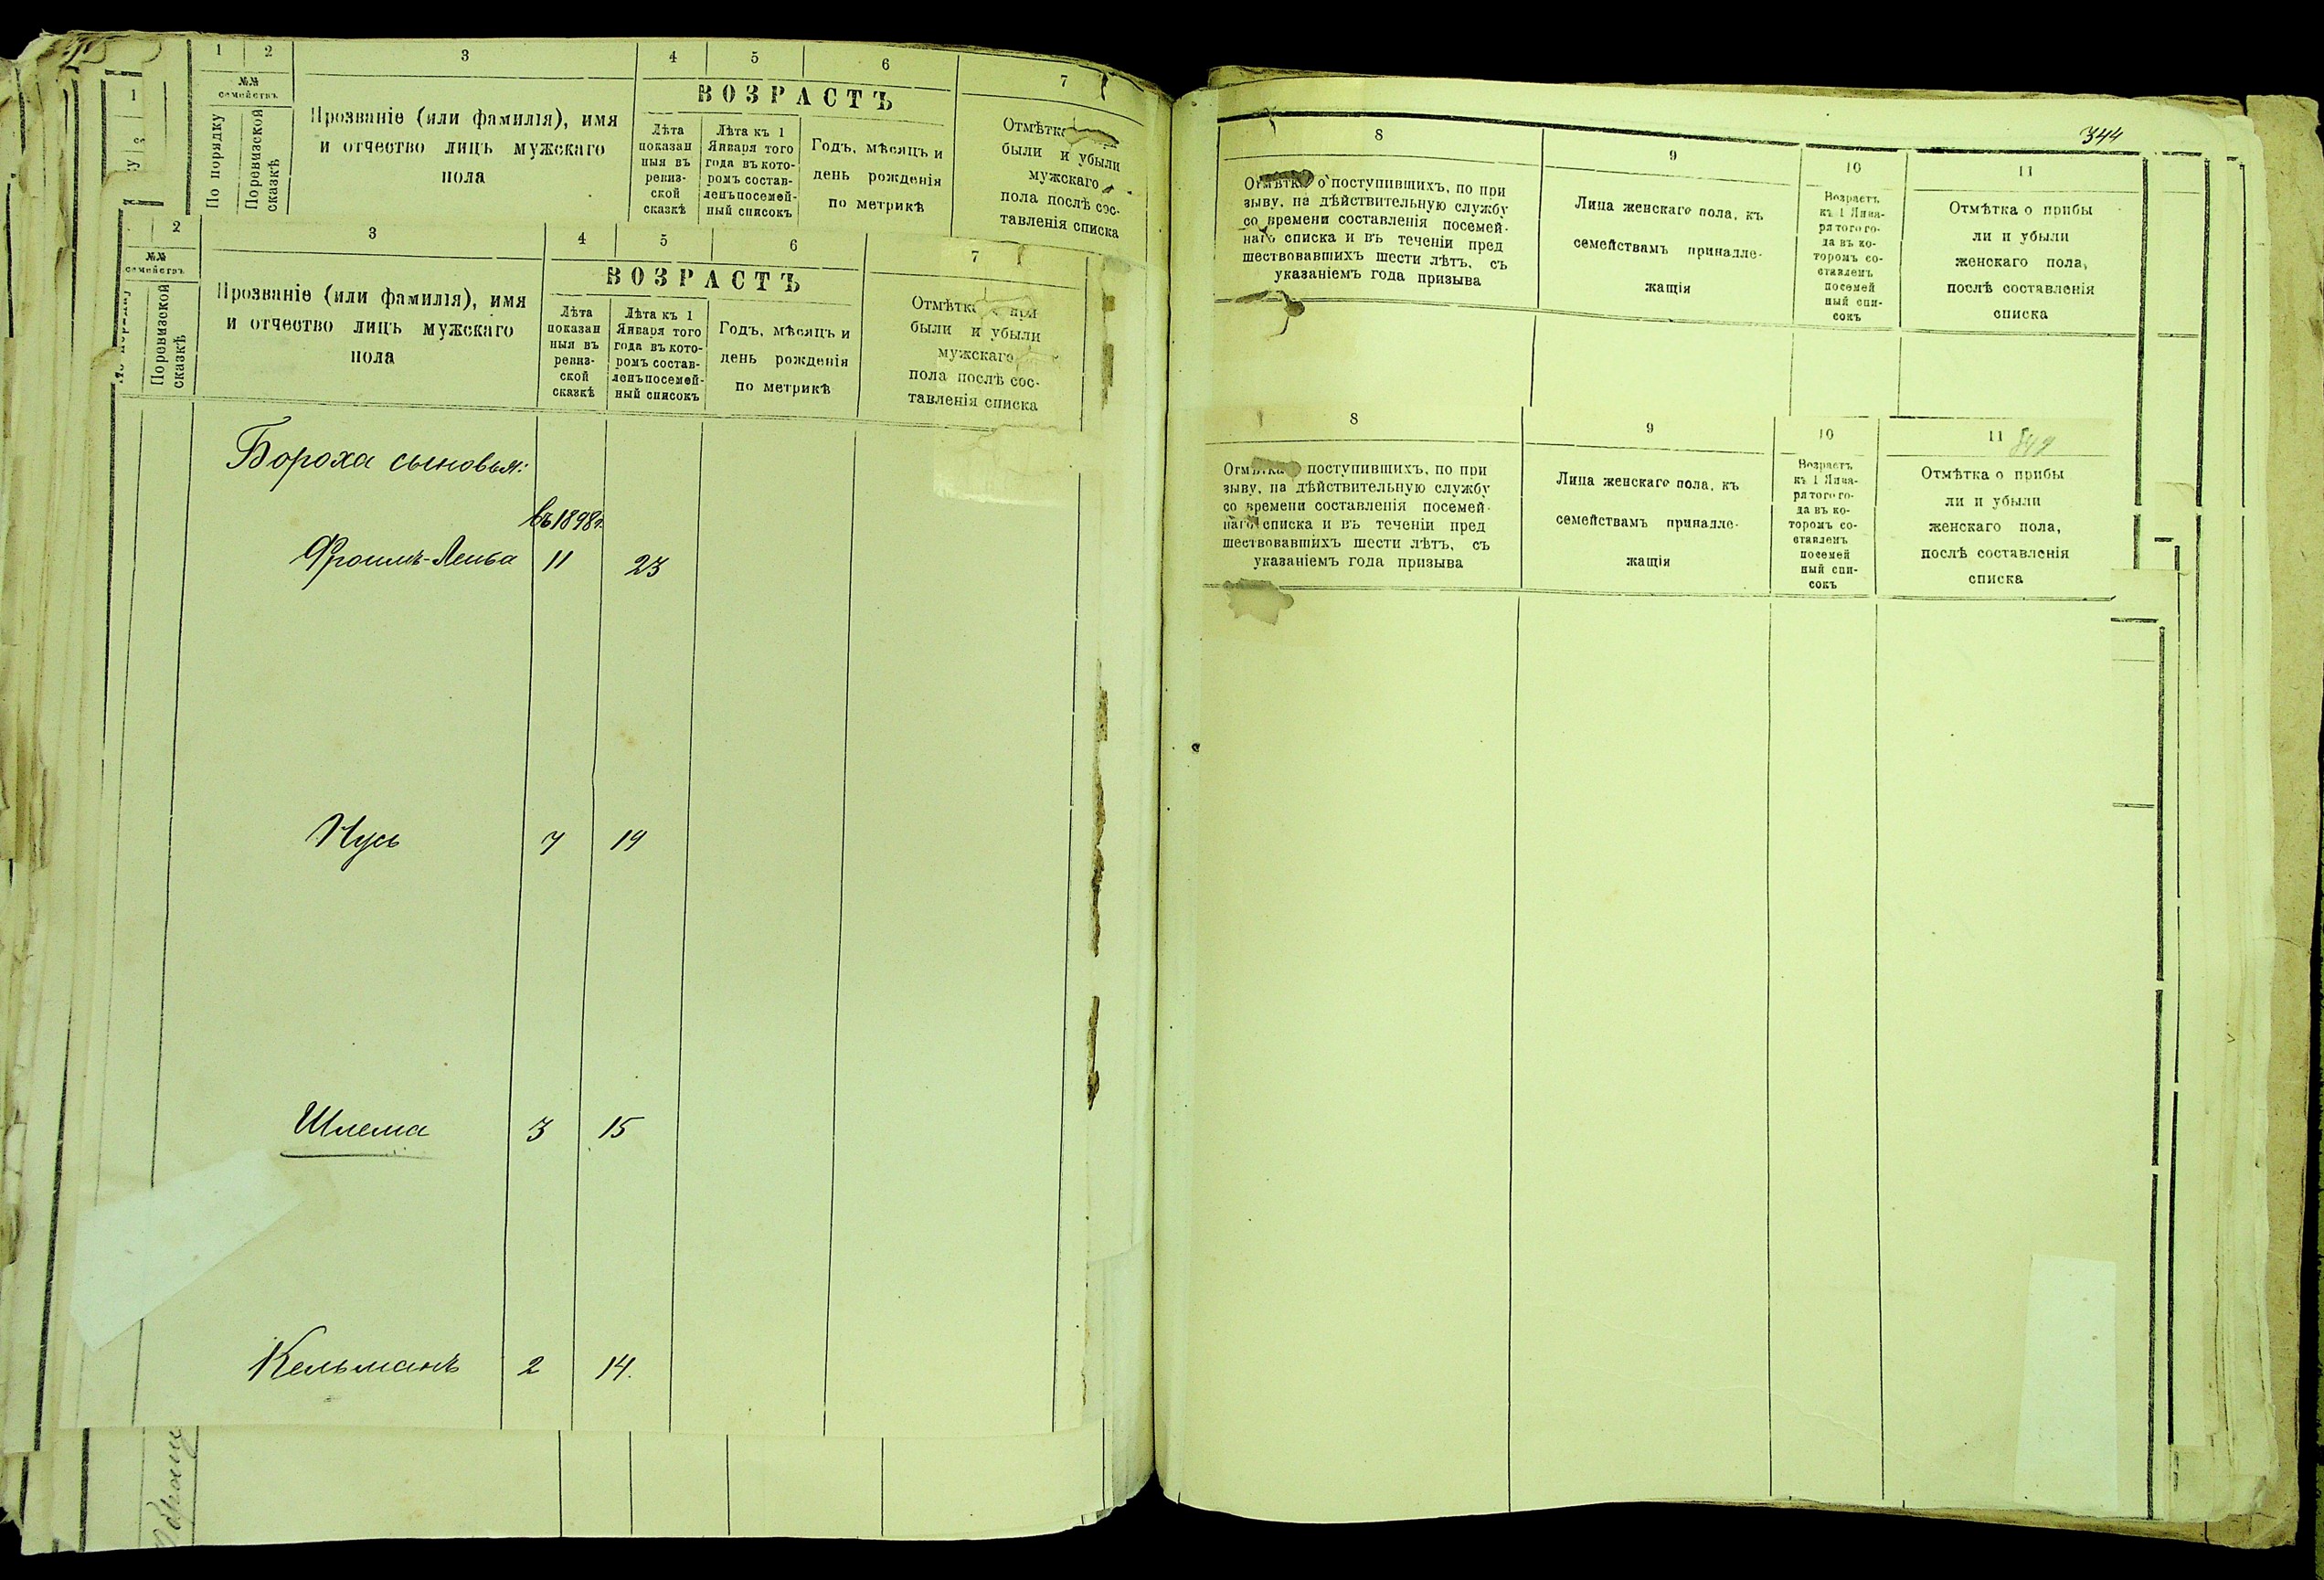 1
2
3
4
5
6
7
№№
семействъ
По порядку
По ревизской
сказкѣ
Прозваніе (или фамилія), имя
и отчество лицъ мужскаго
пола
ВОЗРАСТЪ
Лѣта
показан
ныя въ
ревиз-
ской
сказкѣ
Лѣта къ 1
Января того
года въ кото-
ромъ состав-
ленъ посемей-
ный списокъ
Годъ, мѣсяцъ и
день рожденія
по метрикѣ
Отмѣтка
были и убыли
мужскаго
пола послѣ сос-
тавленія списка
2
3
4
5
6
7
№№
семействъ
По ревизской
сказкѣ
Прозваніе (или фамилія), имя
и отчество лицъ мужскаго
пола
ВОЗРАСТЪ
Лѣта
показан
ныя въ
ревиз-
ской
сказкѣ
Лѣта къ 1
Января того
года въ кото-
ромъ состав-
ленъ посемей-
ный списокъ
Годъ, мѣсяцъ и
день рожденія
по метрикѣ
Отмѣтка при
были и убыли
мужскаго
пола послѣ сос-
тавленія списка
Бороха сыновья:
въ 1898г.
Фроимъ-Лейба 11 23
Нусь 7 19
Шлема 3 15
Кельманъ 2 14.
344
8
9
10
11
Отмѣтка о поступившихъ, по при
зыву, на дѣйствительную службу
со времени составленія посемей-
наго списка и въ теченіи пред
шествовавшихъ шести лѣтъ, съ
указаніемъ года призыва
Лица женскаго пола, къ
семействамъ принадле-
жащія
Возрастъ
къ 1 Янва-
ря того го-
да въ ко-
торомъ со-
ставленъ
посемей
ный спи-
сокъ
Отмѣтка о прибы
ли и убыли
женскаго пола,
послѣ составленія
списка
8
9
10
11
Отмѣтка поступившихъ, по при
зыву, на дѣйствительную службу
со времени составленія посемей-
наго списка и въ теченіи пред
шествовавшихъ шести лѣтъ, съ
указаніемъ года призыва
Лица женскаго пола, къ
семействамъ принадле-
жащія
Возрастъ
къ 1 Янва-
ря того го-
да въ ко-
торомъ со-
ставленъ
посемей
ный спи-
сокъ
Отмѣтка о прибы
ли и убыли
женскаго пола,
послѣ составленія
списка